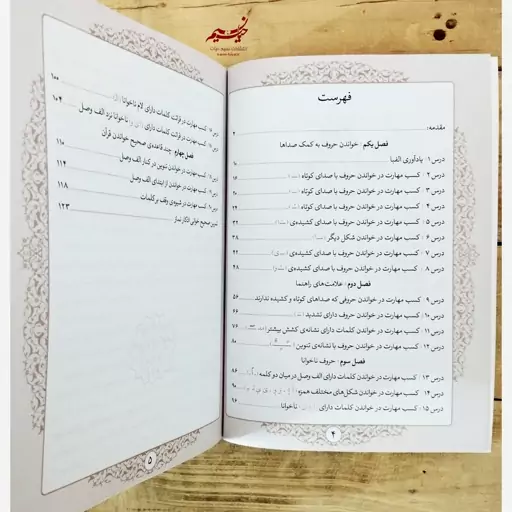 نسیم حیات
انتشارات نسیم حیات
فهرست
مقدمه: ۷
فصل یکم: خواندن حروف به کمک صداها
درس ۱: یادآوری الفبا ۱۰
درس ۲: کسب مهارت در خواندن حروف با صدای کوتاه
درس ۳: کسب مهارت در خواندن حروف با صدای کوتاه
درس ۴: کسب مهارت در خواندن حروف با صدای کوتاه
درس ۵: کسب مهارت در خواندن حروف با صدای کشیده‌ی ۳۲
درس ۶: کسب مهارت در خواندن شکل دیگر ۳۸
درس ۷: کسب مهارت در خواندن حروف با صدای کشیده‌ی ۴۲
درس ۸: کسب مهارت در خواندن حروف با صدای کشیده‌ی ۴۸
فصل دوم: علامت‌های راهنما
درس ۹: کسب مهارت در خواندن حروفی که صداهای کوتاه و کشیده ندارند ۵۶
درس ۱۰: کسب مهارت در خواندن حروف دارای تشدید ۶۶
درس ۱۱: کسب مهارت در خواندن کلمات دارای نشانه‌ی کشش بیشتر ۷۶
درس ۱۲: کسب مهارت در خواندن حروف با نشانه‌ی تنوین ۸۰
فصل سوم: حروف ناخوانا
درس ۱۳: کسب مهارت در خواندن کلمات دارای الف وصل در میان دو کلمه ۸۶
درس ۱۴: کسب مهارت در خواندن شکل‌های مختلف همزه ۹۰
درس ۱۵: کسب مهارت در خواندن کلمات دارای ناخوانا ۹۶
۴
کسب مهارت در قرائت کلمات دارای لام ناخوانا ۱۰۰
کسب مهارت در قرائت کلمات دارای ناخوانا نزد الف وصل ۱۰۴
فصل چهارم: چند قاعده‌ی صحیح خواندن قرآن
کسب مهارت در خواندن تنوین در کنار الف وصل ۱۱۰
کسب مهارت در خواندن از ابتدای الف وصل ۱۱۴
کسب مهارت در شیوه‌ی وقف بر کلمات ۱۱۸
صحیح خوانی اذکار نماز ۱۲۳
۵